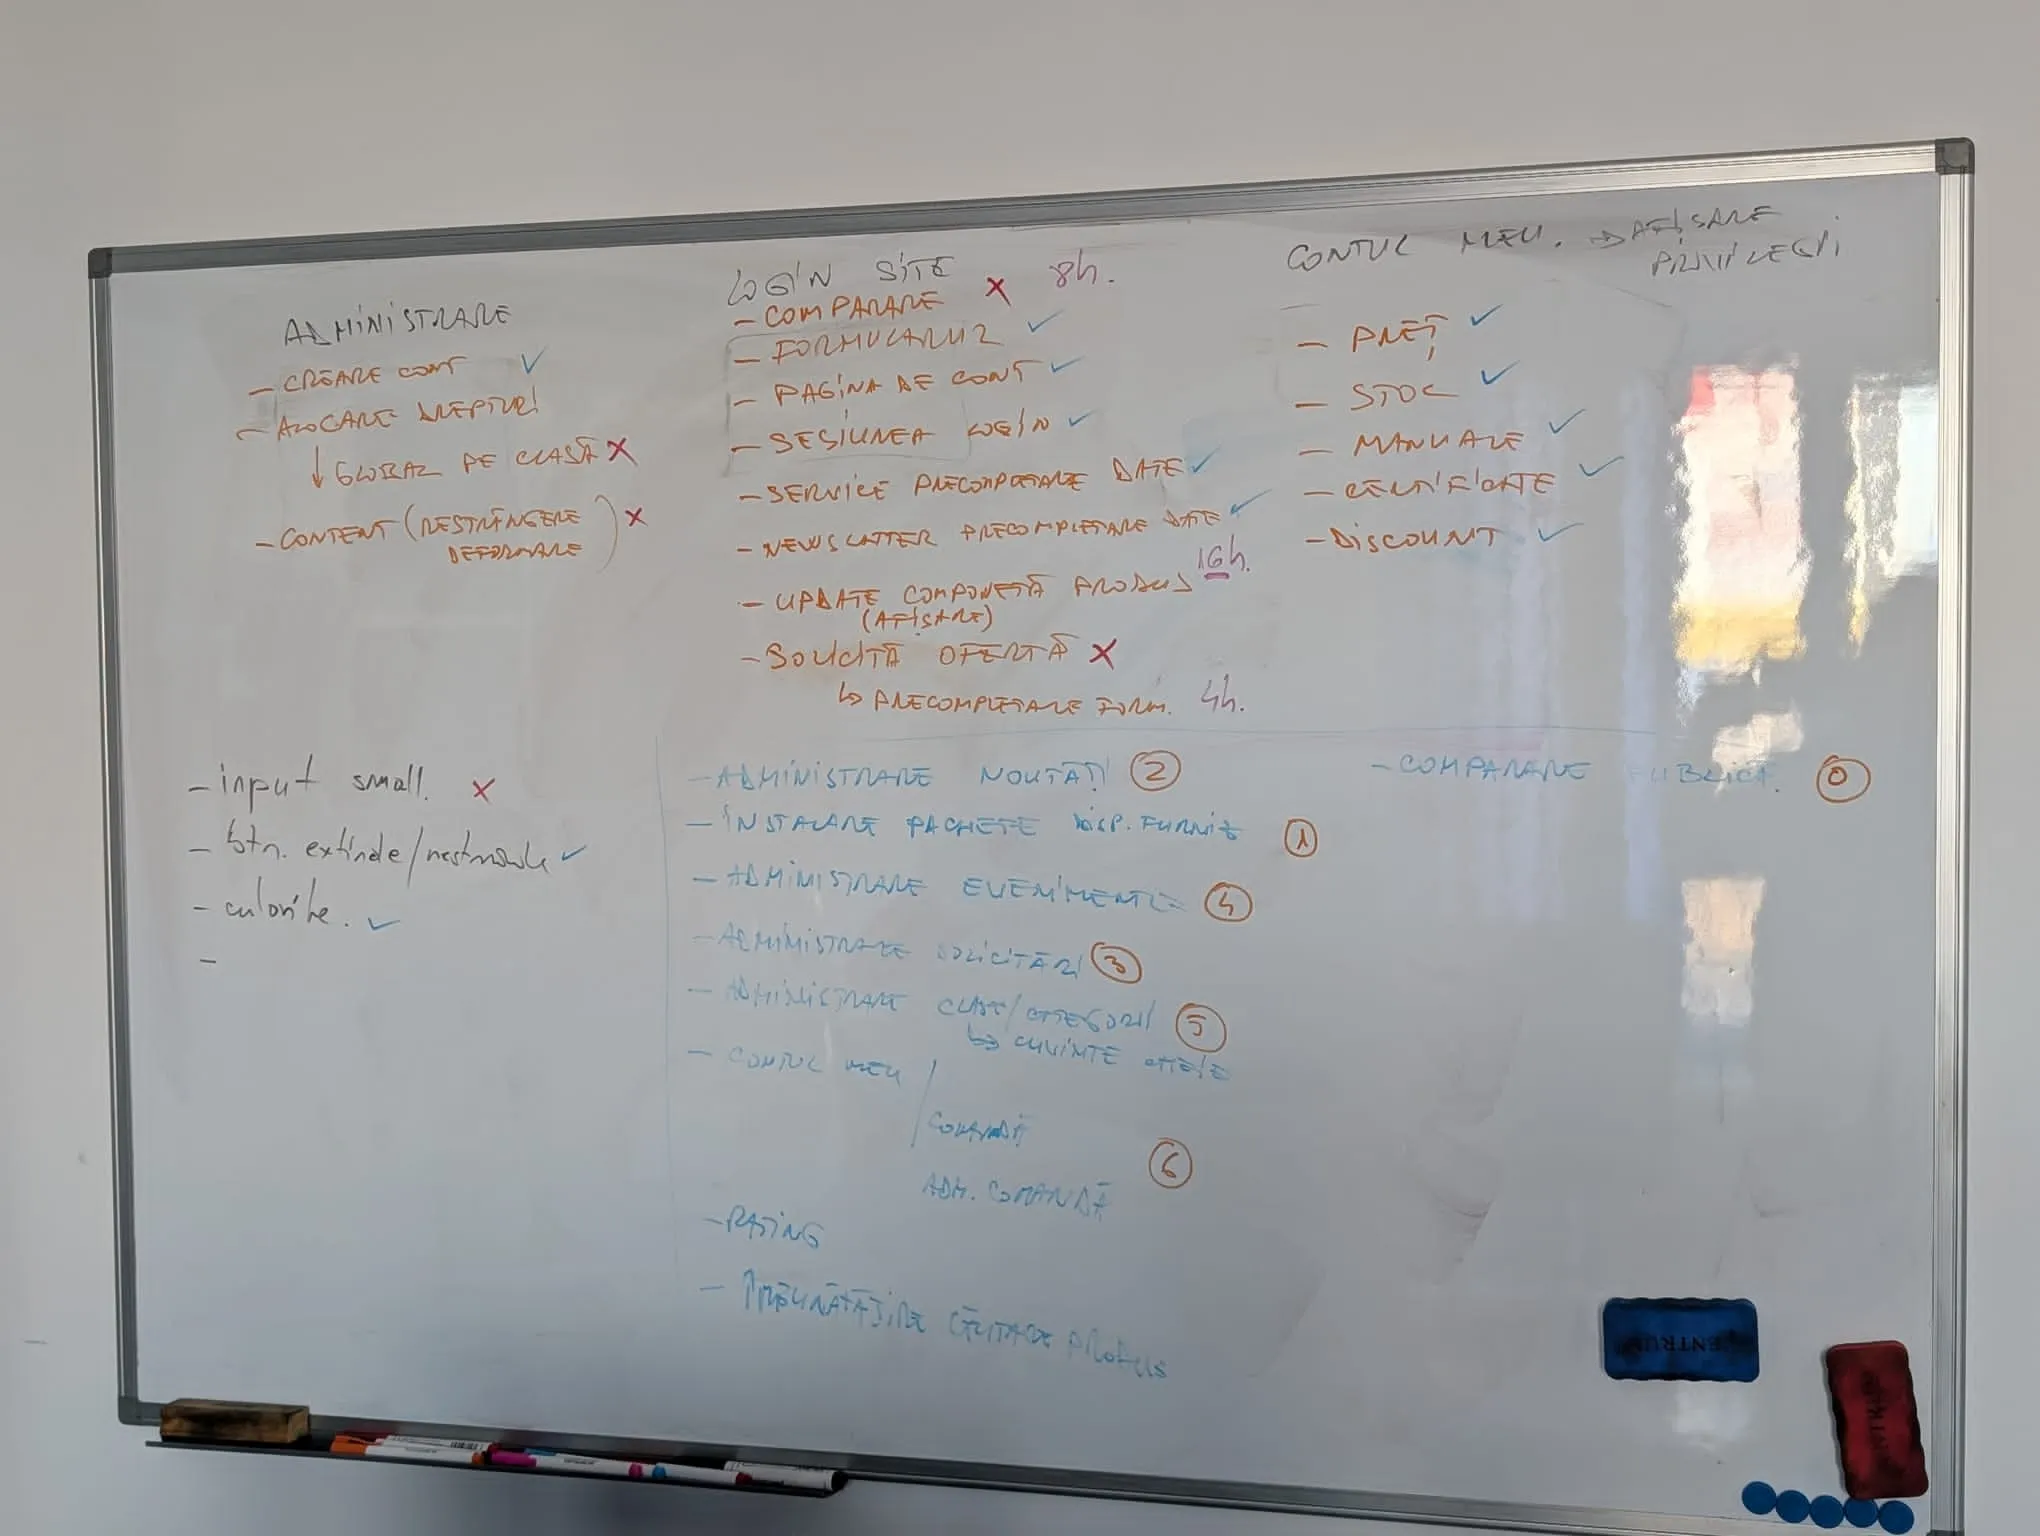 ADMINISTRARE
- CREARE CONT ✓
- ALOCARE DREPTURI
↓ GLOBAL PE CLASĂ X
- CONTENT (RESTRÂNGERE
DEFORMARE) X
LOGIN SITE 8h.
- COMPARARE X
- FORMULARU2 ✓
- PAGINA DE CONT ✓
- SESIUNEA LOGIN ✓
- SERVICE PRECOMPLETARE DATE ✓
- NEWSLATTER PRECOMPLETARE DATE ✓
16h.
- UPDATE COMPONETĂ PRODUS
(AFIȘARE)
- SOLICITĂ OFERTĂ X
↳ PRECOMPLETARE FORM. 4h.
CONTUL MEU. → AFIȘARE
PRIVILEGII
- PREȚ ✓
- STOC ✓
- MANUALE ✓
- CERTIFICATE ✓
- DISCOUNT ✓
- input small. X
- btn. extinde/restrânde ✓
- culorile. ✓
-
- ADMINISTRARE NOUTĂȚI 2
- INSTALARE PACHETE DISP. FURNIZ 1
- ADMINISTRARE EVENIMENTE 4
- ADMINISTRARE SOLICITĂRI 3
- ADMINISTRARE CLASE/CATEGORII 5
↳ CUVINTE CHEIE
- CONTUL MEU /
COMANDĂ
6
ADM. COMANDĂ
- RATING
- ÎMBUNĂTĂȚIRE CĂUTARE PRODUS
- COMPARARE PUBLICĂ. 0
CENTRUM